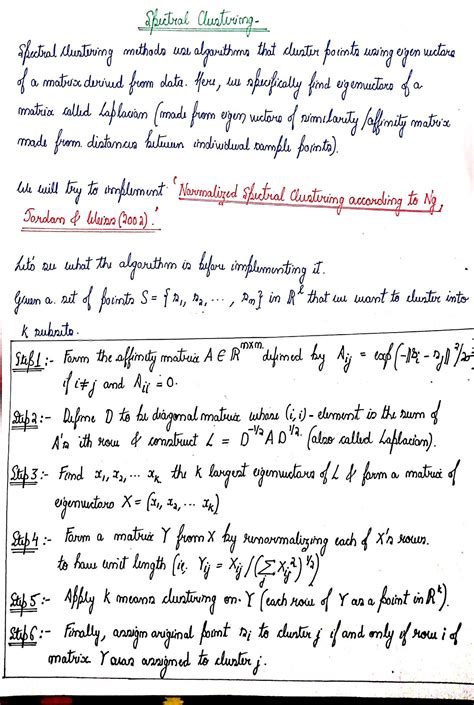 Spectral Clustering-
Spectral clustering methods use algorithms that cluster points using eigen vectors
of a matrix derived from data. Here, we specifically find eigenvectors of a
matrix called Laplacian (made from eigen vectors of similarity/affinity matrix
made from distances between individual sample points).
We will try to implement 'Normalized Spectral Clustering according to Ng,
Jordan & Weiss (2002).'
Let's see what the algorithm is before implementing it.
Given a set of points S = { s₁, s₂, ..., sₙ} in ℝˡ that we want to cluster into
k subsets.
Step1:- Form the affinity matrix A ∈ ℝ^mxm defined by Aij = exp(-||si - sj||²/2σ²)
if i≠j and Aii = 0.
Step2:- Define D to be diagonal matrix whose (i,i)-element is the sum of
A's ith row & construct L = D^-1/2 A D^1/2. (also called Laplacian).
Step3:- Find x₁, x₂, ... xk the k largest eigenvectors of L & form a matrix of
eigenvectors X = [x₁, x₂, ... xk]
Step4:- Form a matrix Y from X by renormalizing each of X's rows.
to have unit length (ie. Yij = Xij/(∑j Xij²)^1/2)
Step5:- Apply K means clustering on Y (each row of Y as a point in ℝᵏ).
Step6:- Finally, assign original point si to cluster j if and only if row i of
matrix Y was assigned to cluster j.